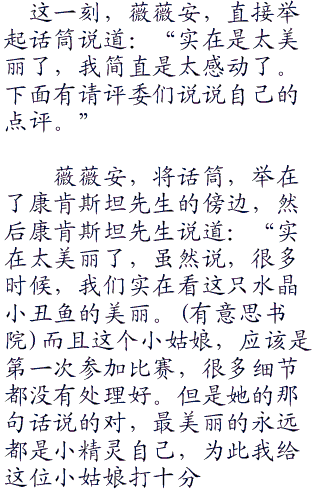 这一刻，薇薇安，直接举
起话筒说道：“实在是太美
丽了，我简直是太感动了。
下面有请评委们说说自己的
点评。”
薇薇安，将话筒，举在
了康肯斯坦先生的傍边，然
后康肯斯坦先生说道：“实
在太美丽了，虽然说，很多
时候，我们实在看这只水晶
小丑鱼的美丽。(有意思书
院)而且这个小姑娘，应该是
第一次参加比赛，很多细节
都没有处理好。但是她的那
句话说的对，最美丽的永远
都是小精灵自己，为此我给
这位小姑娘打十分